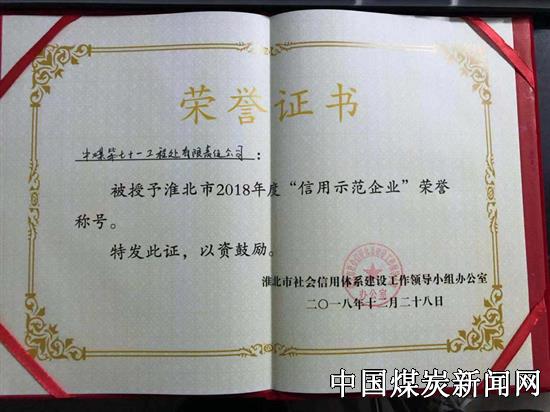 荣誉证书
中煤第七十一工程处有限责任公司：
被授予淮北市2018年度“信用示范企业”荣誉
称号。
特发此证，以资鼓励。
淮北市社会信用体系建设工作领导小组办公室
办公室
二〇一八年十二月二十八日
中国煤炭新闻网